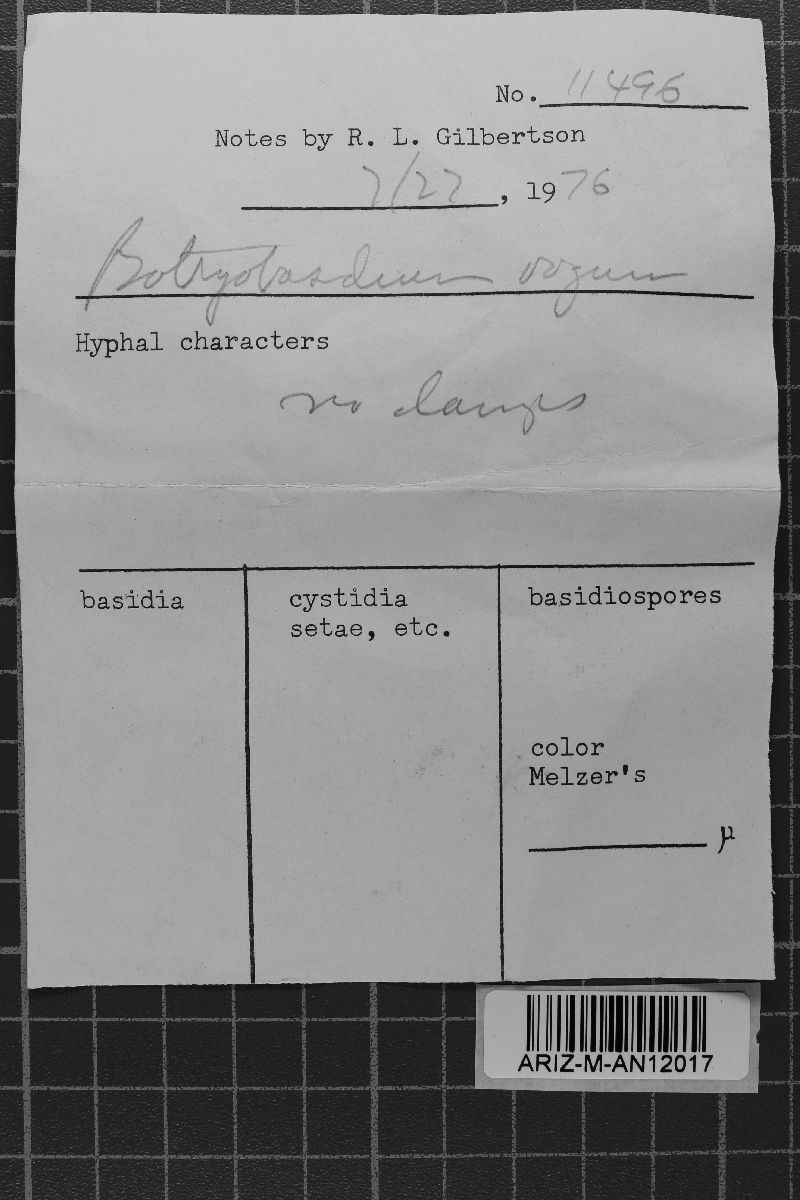 No. 11496
Notes by R. L. Gilbertson
7/27, 1976
Botryobasidium vagum
Hyphal characters
no clamps
basidia
cystidia
setae, etc.
basidiospores
color
Melzer's
µ
ARIZ-M-AN12017